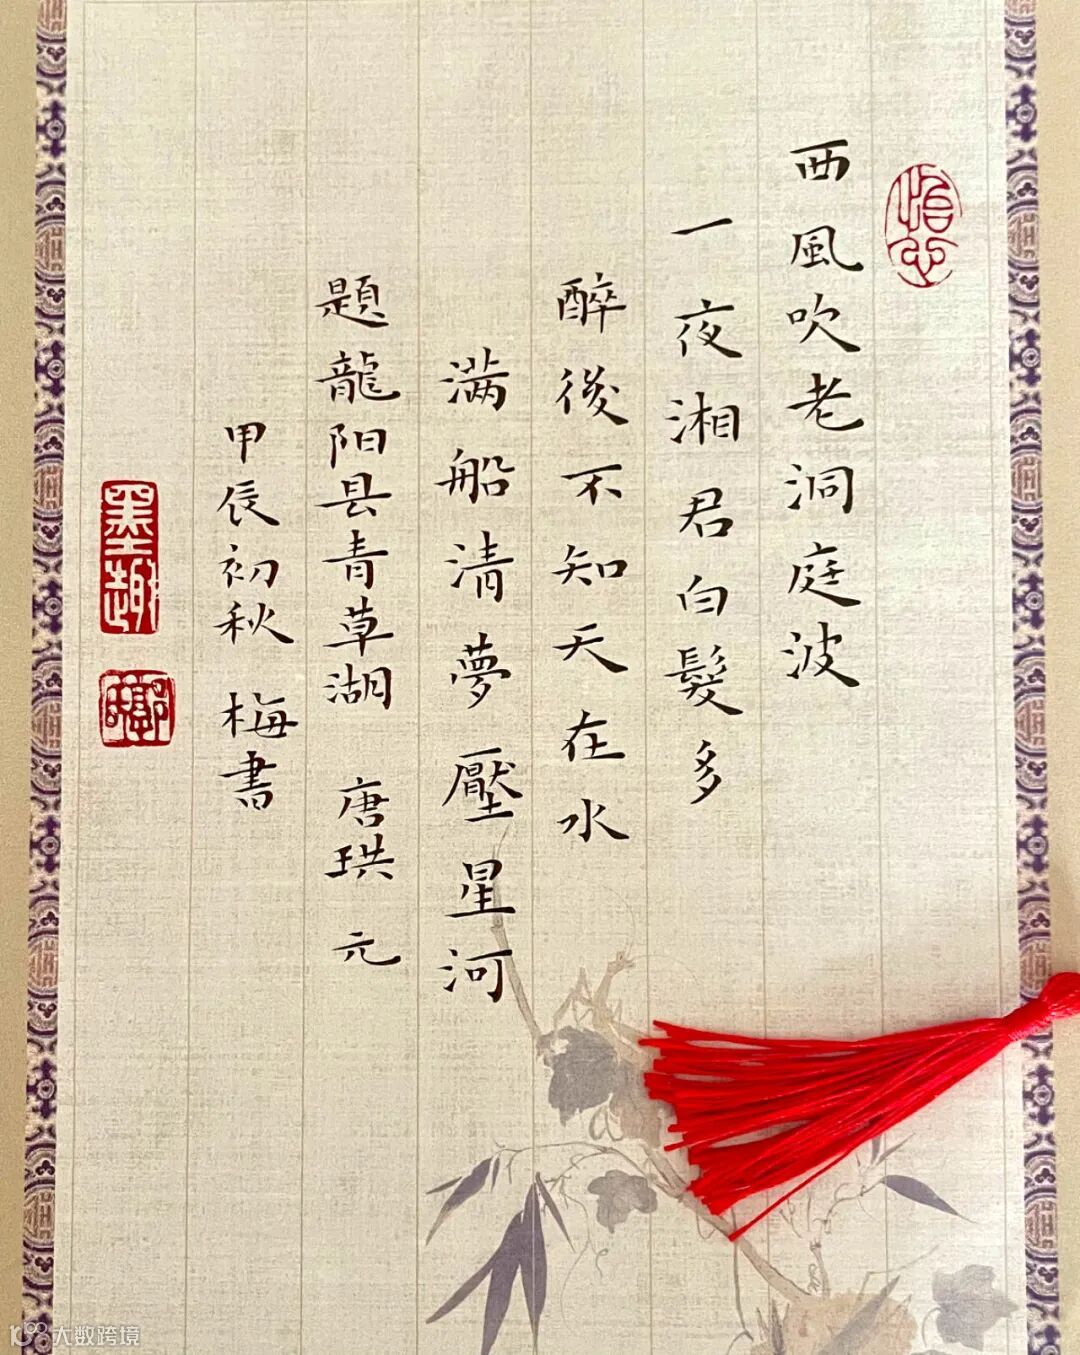 西風吹老洞庭波
一夜湘君白髮多
醉後不知天在水
满船清夢壓星河
題龍阳县青草湖 唐珙 元
甲辰初秋 梅書
墨趣
大数跨境